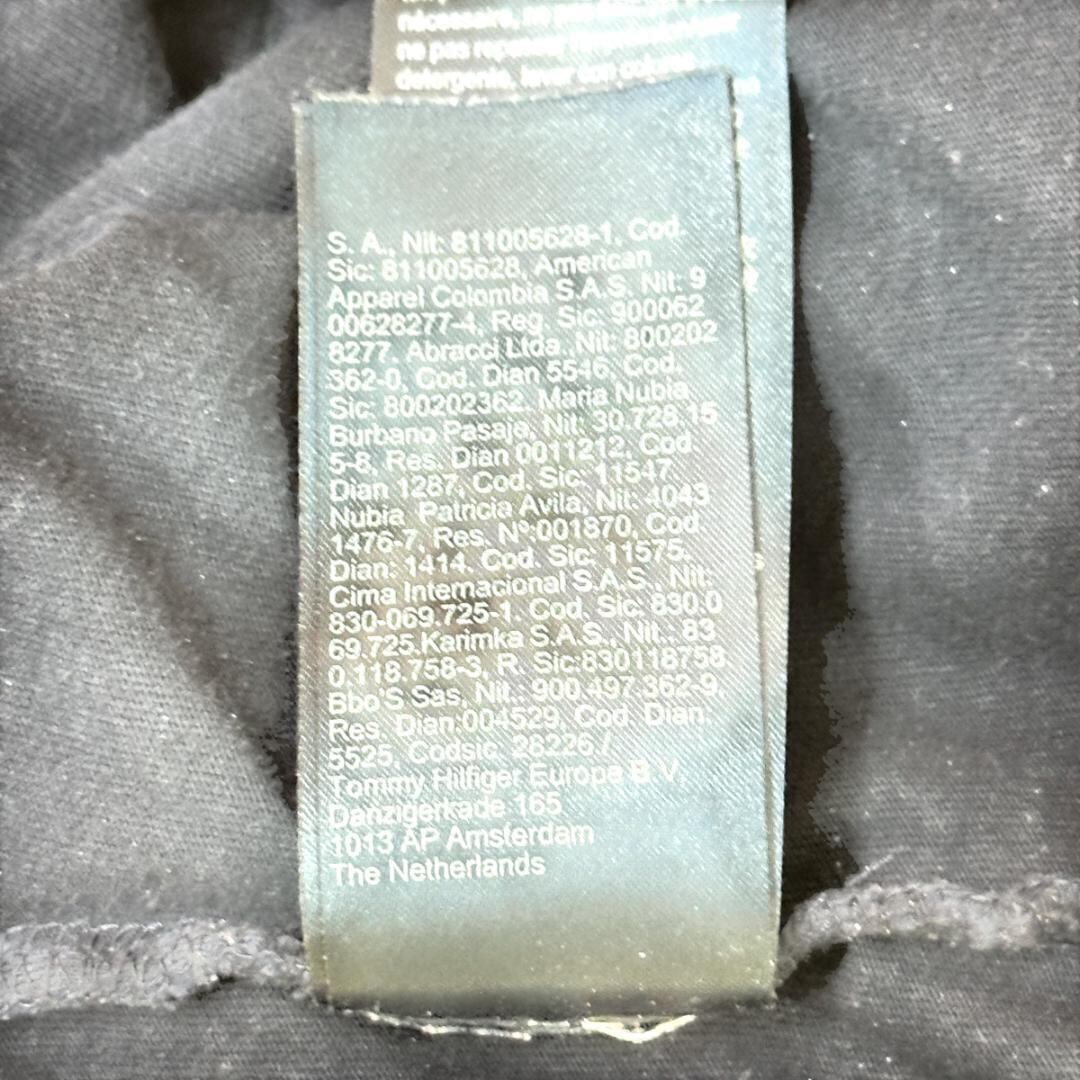 ne pas repasser
detergente, laver con
S. A., Nit: 811005628-1, Cod.
Sic: 811005628, American
Apparel Colombia S.A.S, Nit: 9
00628277-4, Reg. Sic: 900062
8277. Abracci Ltda, Nit: 800202
362-0, Cod. Dian 5546, Cod.
Sic: 800202362. Maria Nubia
Burbano Pasaje, Nit: 30.728.15
5-8, Res. Dian 0011212, Cod
Dian 1287, Cod. Sic: 11547
Nubia Patricia Avila, Nit: 4043
1476-7, Res. Nº:001870, Cod
Dian: 1414. Cod. Sic: 11575.
Cima Internacional S.A.S., Nit:
830-069.725-1. Cod. Sic: 830.0
69.725.Karimka S.A.S., Nit.: 83
0.118.758-3, R. Sic:830118758.
Bbo'S Sas, Nit.: 900.497.362-9,
Res. Dian:004529, Cod. Dian:
5525, Codsic. 28226 /
Tommy Hilfiger Europe B.V,
Danzigerkade 165
1013 AP Amsterdam
The Netherlands